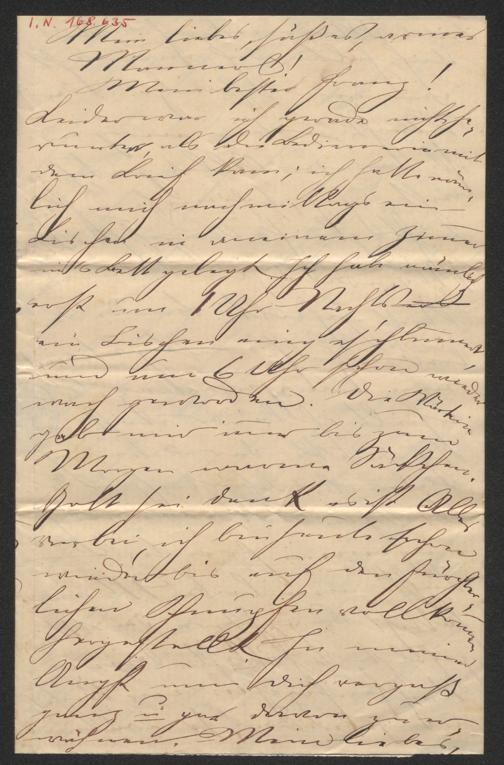 I.N. 168.635
Mein liebes, süßes, armes
Mannerl!
Mein bester Franz!
Leider war ich gerade nicht he-
runten, als die Bedienerin mit
dem Brief kam; ich hatte näm-
lich mich nachmittags ein
bischen in meinem Zimmer
ins Bett gelegt. Ich hab nämlich
erst um 1 Uhr Nachts
ein bischen eingeschlummert
und um 6 Uhr schon wieder
wach geworden. Die
gab mir immer bis zum
Morgen warme
Gott sei dank es ist Alles
vorbei, ich bin heute schon
wieder bis auf den fürchter-
lichen Schnupfen vollkommen
hergestellt. In meiner
Angst um Dich vergaß
ganz u gar davon zu er-
wähnen. Mein liebes,